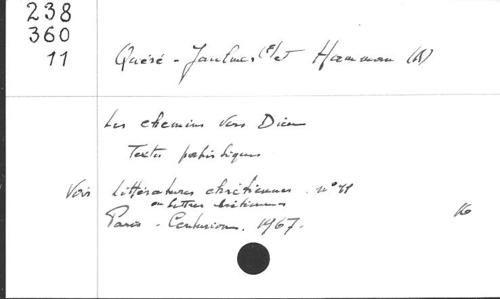 238
360
11
Quéré - Jaulmes (F) et Hamman (A)
Les chemins vers Dieu
Textes patristiques
Voir Littératures chrétiennes. n° 11
ou lettres chrétiennes
Paris - Centurion. 1967.